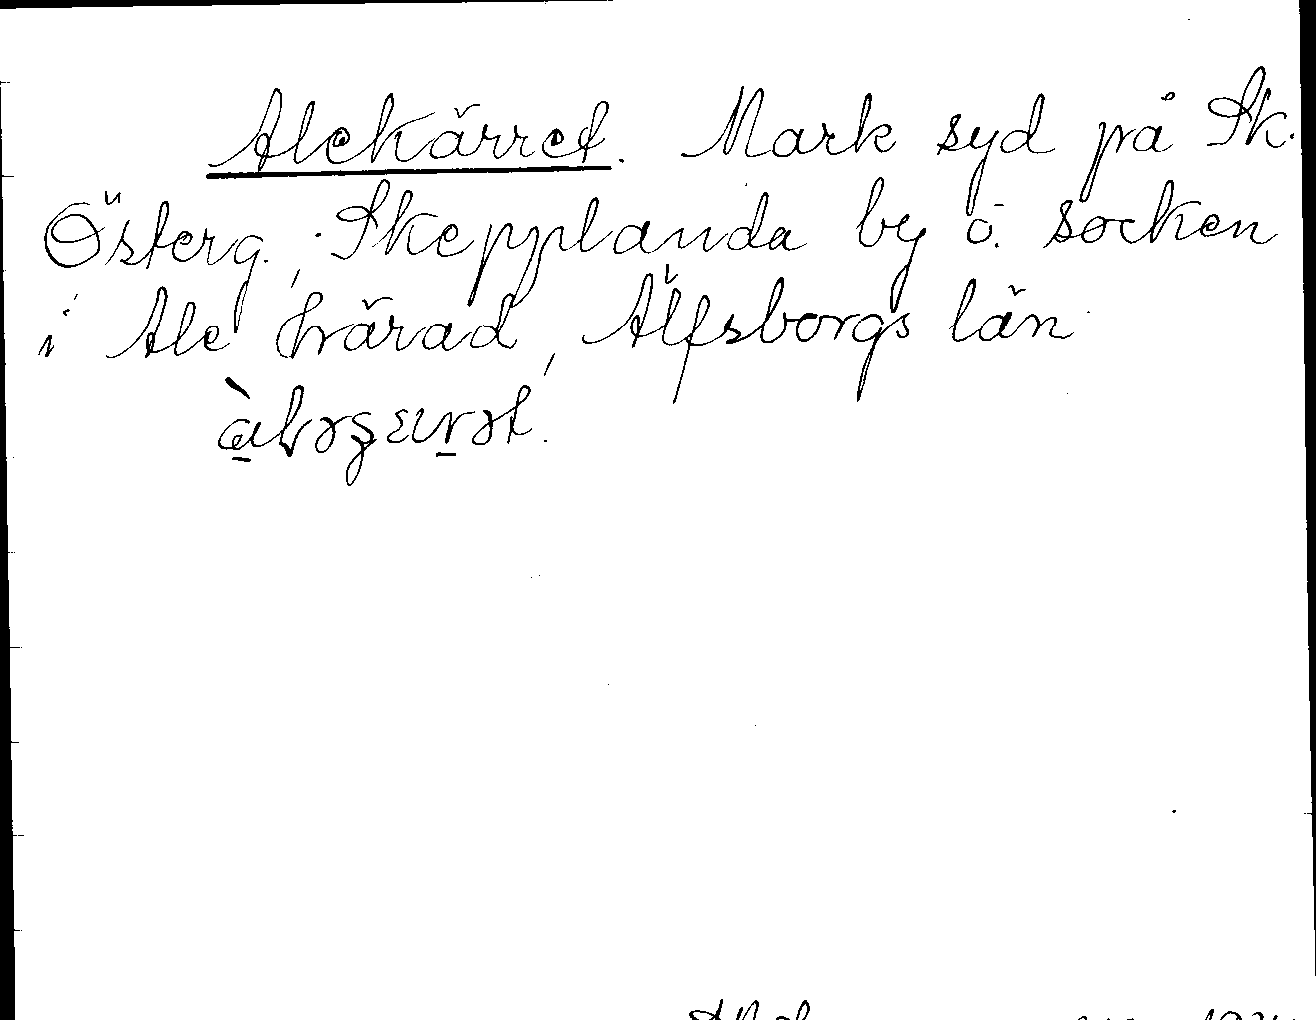 Alekärret. Mark syd på Sk.
Österg., Skepplanda by o. socken
i Ale härad, Älfsborgs län